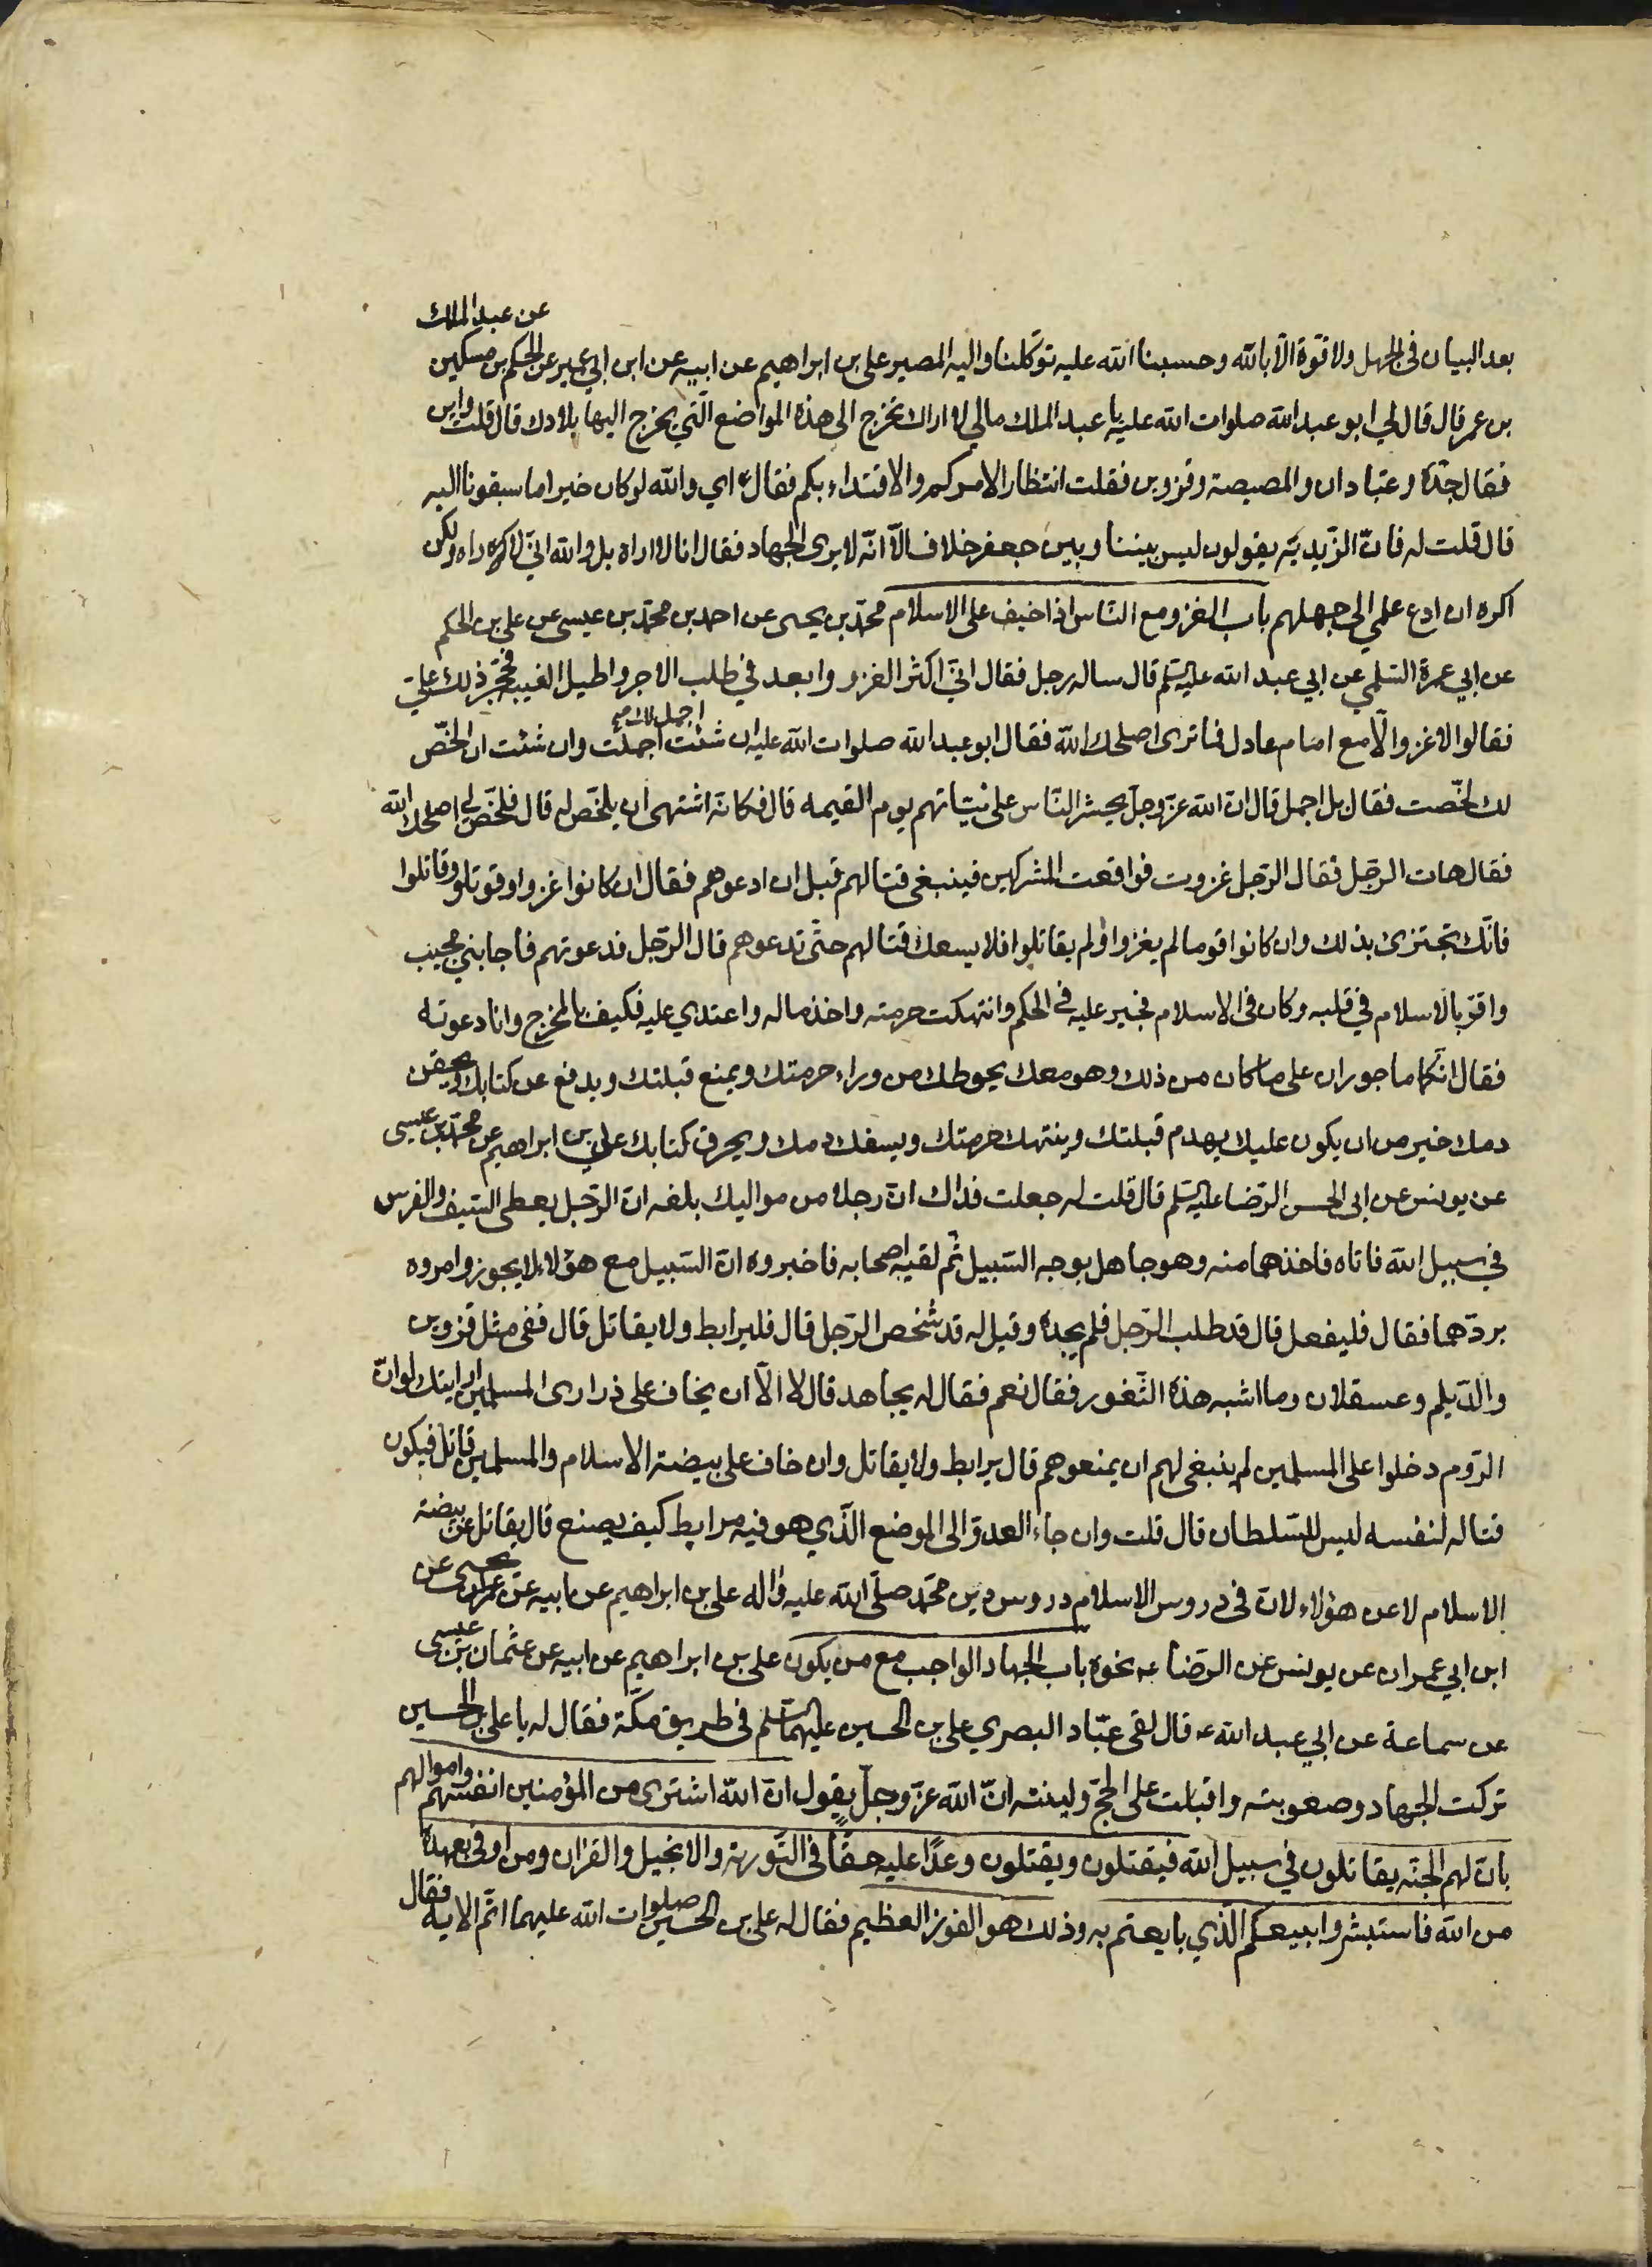 بعد البيان فى الجهل ولا قوة الّا بالله وحسبنا الله عليه توكلنا واليه المصير على بن ابراهيم عن ابيه عن ابن ابي عمير عن الحكم بن مسكين عن عبد الملك
بن عمر قال قال لي ابو عبد الله صلوات الله عليه يا عبد الملك مالي لا اراك تخرج الى هذه المواضع الّتي يخرج اليها بلادك قال قلت واين
فقال جدّة وعبّادان والمصيصة وقزوين فقلت انتظارا لامركم والاقتداء بكم فقال اي والله لو كان خيرا ما سبقونا اليه
قال قلت له فانّ الزّيديّه يقولون ليس بيننا وبين جعفر خلاف الّا انّه لا يرى الجهاد فقال انا لا اراه بل والله انّي لاراه ولكن
اكره ان ادع علمي الى جهلهم باب الغزو مع النّاس اذا خيف على الاسلام محمّد بن يحيى عن احمد بن محمّد بن عيسى عن على بن الحكم
عن ابي عمرة السّلمي عن ابي عبد الله عليه السّلم قال ساله رجل فقال انّي اكثر الغزو وابعد في طلب الاجر واطيل الغيبه فحجّر ذلك عليّ
فقالوا لا غزو الّا مع امام عادل فما ترى اصلحك الله فقال ابو عبد الله صلوات الله عليه ان شئت اجمل لك اجملت وان شئت ان الخّص
لك لخّصت فقال بل اجمل قال انّ الله عزّ وجلّ يحشر النّاس على نيّاتهم يوم القيمه قال فكانّه اشتهى ان يلخّص له قال فلخّص لي اصلحك الله
فقال هات الرّجل فقال الرّجل غزوت فواقعت المشركين فينبغى قتالهم قبل ان ادعوهم فقال ان كانوا غزوا وقوتلوا وقاتلوا
فانّك تجتزئ بذلك وان كانوا قوما لم يغزوا ولم يقاتلوا فلا يسعك قتالهم حتّى تدعوهم قال الرّجل فدعوتهم فاجابني مجيب
واقرّ بالاسلام في قلبه وكان فى الاسلام فجير عليه فى الحكم وانتهكت حرمته واخذ ماله واعتدي عليه فكيف بالمخرج وانا دعوته
فقال انّكما ماجوران على ما كان من ذلك وهو معك يحوطك من وراء حرمتك ويمنع قبلتك ويدفع عن كتابك ويحقن
دمك خير من ان يكون عليك يهدم قبلتك وينتهك حرمتك ويسفك دمك ويحرق كتابك على بن ابراهيم عن محمّد بن عيسى
عن يونس عن ابى الحسن الرّضا عليه السّلم قال قلت له جعلت فداك انّ رجلا من مواليك بلغه انّ الرّجل يعطى السّيف والفرس
في سبيل الله فاتاه فاخذهما منه وهو جاهل بوجه السّبيل ثم لقيه اصحابه فاخبروه انّ السّبيل مع هؤلاء لا يجوز وامروه
بردّهما فقال فليفعل قال قد طلب الرّجل فلم يجده وقيل له قد شخص الرّجل قال فليرابط ولا يقاتل قال ففى مثل قزوين
والدّيلم وعسقلان وما اشبه هذه الثّغور فقال نعم فقال له يجاهد قال لا الّا ان يخاف على ذرارى المسلمين ارايتك لو انّ
الرّوم دخلوا على المسلمين لم ينبغى لهم ان يمنعوهم قال يرابط ولا يقاتل وان خاف على بيضة الاسلام والمسلمين قاتل فيكون
قتاله لنفسه ليس للسّلطان قال قلت وان جاء العدوّ الى الموضع الّذي هو فيه مرابط كيف يصنع قال يقاتل عن بيضة
الاسلام لا عن هؤلاء لانّ في دروس الاسلام دروس دين محمّد صلّى الله عليه واله على بن ابراهيم عن ابيه عن يحيى عن
ابن ابي عمران عن يونس عن الرّضا ع نحوه باب الجهاد الواجب مع من يكون على بن ابراهيم عن ابيه عن عثمان بن عيسى
عن سماعة عن ابي عبد الله ع قال لقى عبّاد البصري على بن الحسين عليهما السّلم في طريق مكّة فقال له يا على بن الحسين
تركت الجهاد وصعوبته واقبلت على الحجّ ولينته انّ الله عزّ وجلّ يقول انّ الله اشترى من المؤمنين انفسهم واموالهم
بانّ لهم الجنّه يقاتلون في سبيل الله فيقتلون ويقتلون وعدًا عليه حقًّا فى التّورية والانجيل والقران ومن اوفى بعهده
من الله فاستبشروا ببيعكم الّذي بايعتم به وذلك هو الفوز العظيم فقال له على بن الحسين صلوات الله عليهما اتمّ الاية فقال